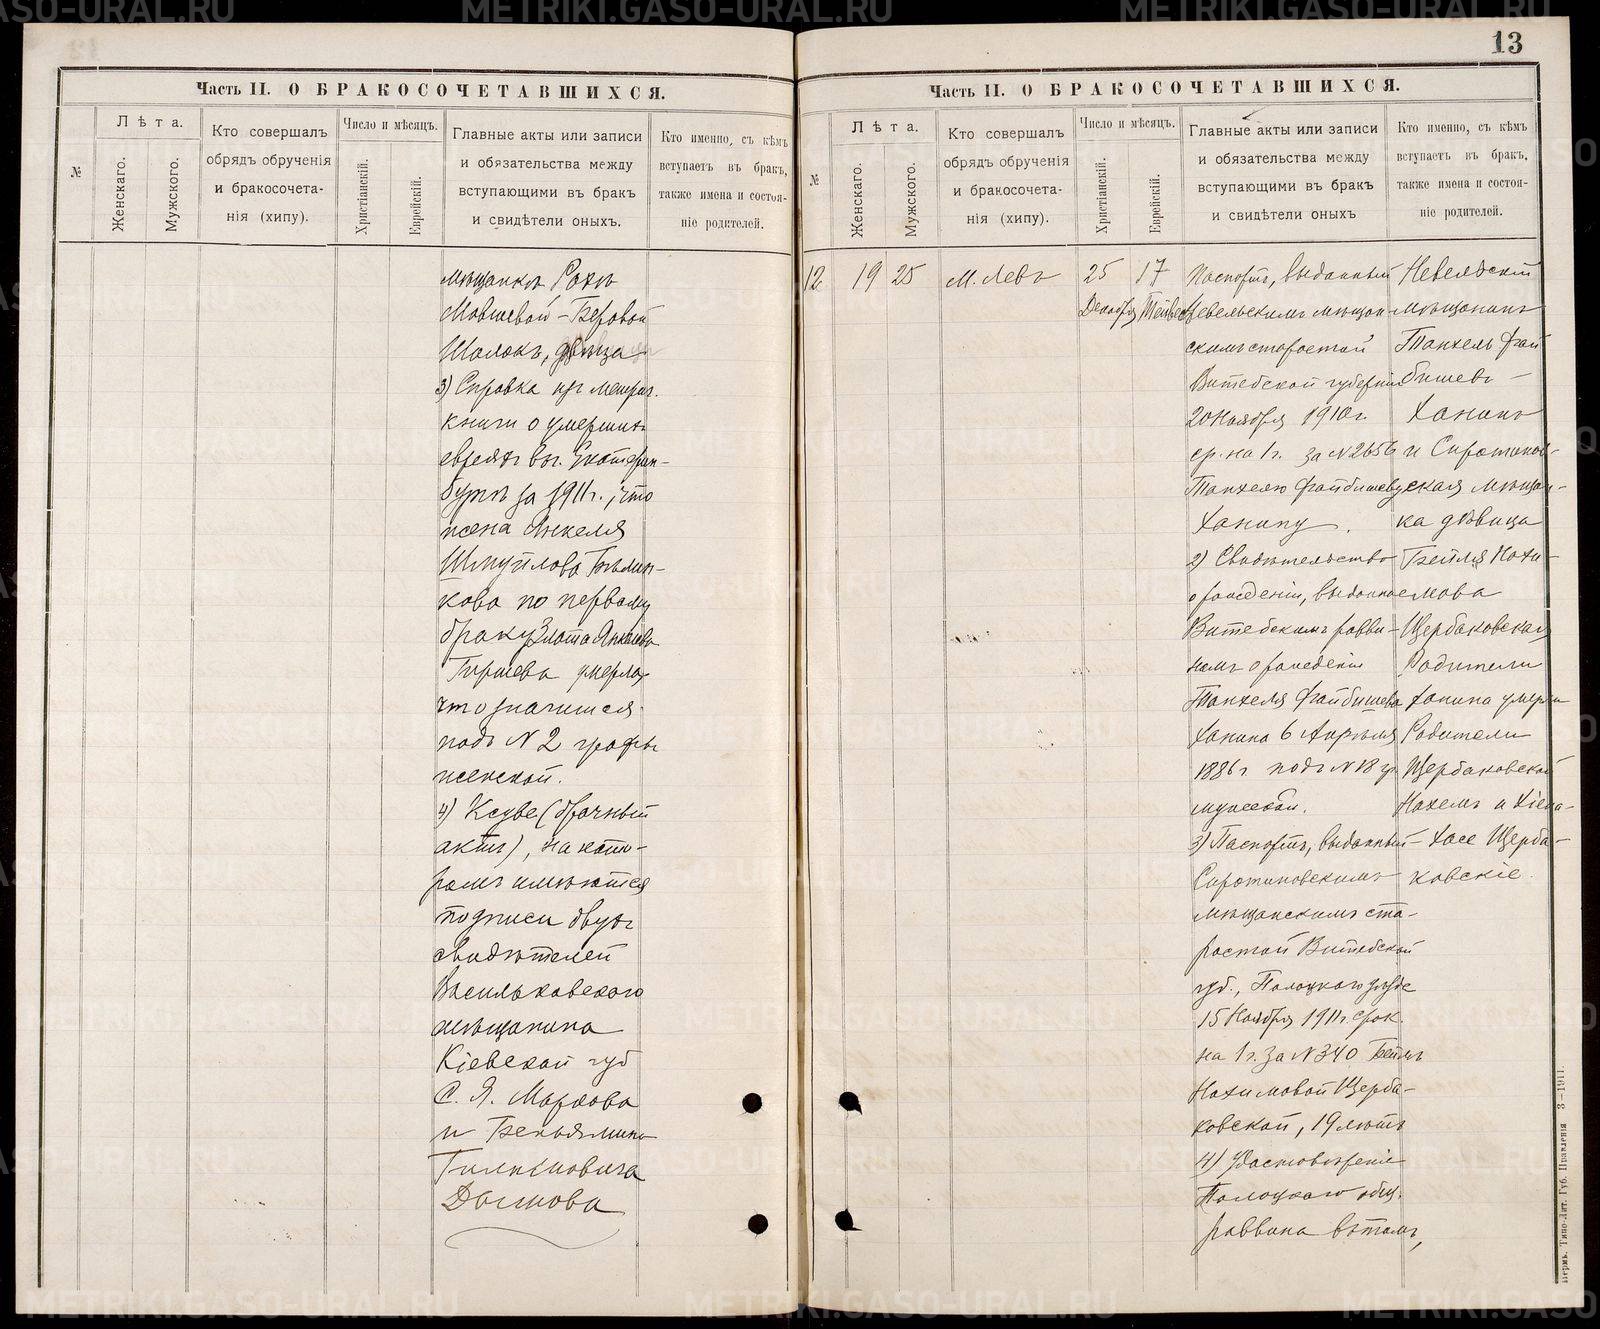 METRIKI.GASO-URAL.RU
13
Часть II. О БРАКОСОЧЕТАВШИХСЯ.
№
Лѣта.
Женскаго.
Мужского.
Кто совершалъ
обрядъ обрученія
и бракосочета-
нія (хипу).
Число и мѣсяцъ.
Христіанскій.
Еврейскій.
Главные акты или записи
и обязательства между
вступающими въ бракъ
и свидѣтели оныхъ.
Кто именно, съ кѣмъ
вступаетъ въ бракъ,
также имена и состоя-
ніе родителей.
мѣщанкѣ Рохѣ
Мовшевой-Беровой
дѣвица
3) Справка изъ метрич.
книги о умершихъ
евреяхъ въ г. Екатерин-
бургѣ за 1911 г., что
жена Янкеля
Шмуйлова Бѣлин-
кова по первому
браку Злата
Гиршева умерла,
что значится
подъ № 2 графы
женской.
4) Ксубе (брачный
актъ), на кото-
ромъ имѣются
подписи двухъ
свидѣтелей
Васильковского
мѣщанина
Кіевской губ
С. Я. Маркова
и Беньямина
Дымова
Часть II. О БРАКОСОЧЕТАВШИХСЯ.
№
Лѣта.
Женскаго.
Мужского.
Кто совершалъ
обрядъ обрученія
и бракосочета-
нія (хипу).
Число и мѣсяцъ.
Христіанскій.
Еврейскій.
Главные акты или записи
и обязательства между
вступающими въ бракъ
и свидѣтели оныхъ
Кто именно, съ кѣмъ
вступаетъ въ бракъ,
также имена и состоя-
ніе родителей.
12
19
25
М. Левъ
25
Декабря
17
Тейвес
Паспортъ, выданный
Невельскимъ мѣщан-
скимъ старостой
Витебской губерніи
20 Ноября 1910 г.
ср. на 1 г. за № 2656
Танхелю Файбишеву
Ханину.
2) Свидѣтельство
о рожденіи, выданное
Витебскимъ равви-
номъ о рожденіи
Танхеля Файбишева
Ханина 6 Апрѣля
1886 г. подъ № 18 гр.
мужской.
3) Паспортъ, выданный
Сиротиновскимъ
мѣщанскимъ ста-
ростой Витебской
губ., Полоцкаго уѣзда
15 Ноября 1911 г. срок.
на 1 г. за № 340 Бейлѣ
Нохимовой Щерба-
ковской, 19 лѣтъ
4) Удостовѣреніе
Полоцкаго общ.
раввина въ томъ,
Невельскій
мѣщанинъ
Танхель Фай
бишевъ
Ханинъ
и Сиротинов-
ская мѣщан-
ка дѣвица
Бейля Нохи-
мова
Щербаковская
Родители
Ханина умерли
Родители
Щербаковской
Нохемъ и Хіена-
Хасе Щерба-
ковскіе.
Пермь. Типо-Лит. Губ. Правленія 3—1911.